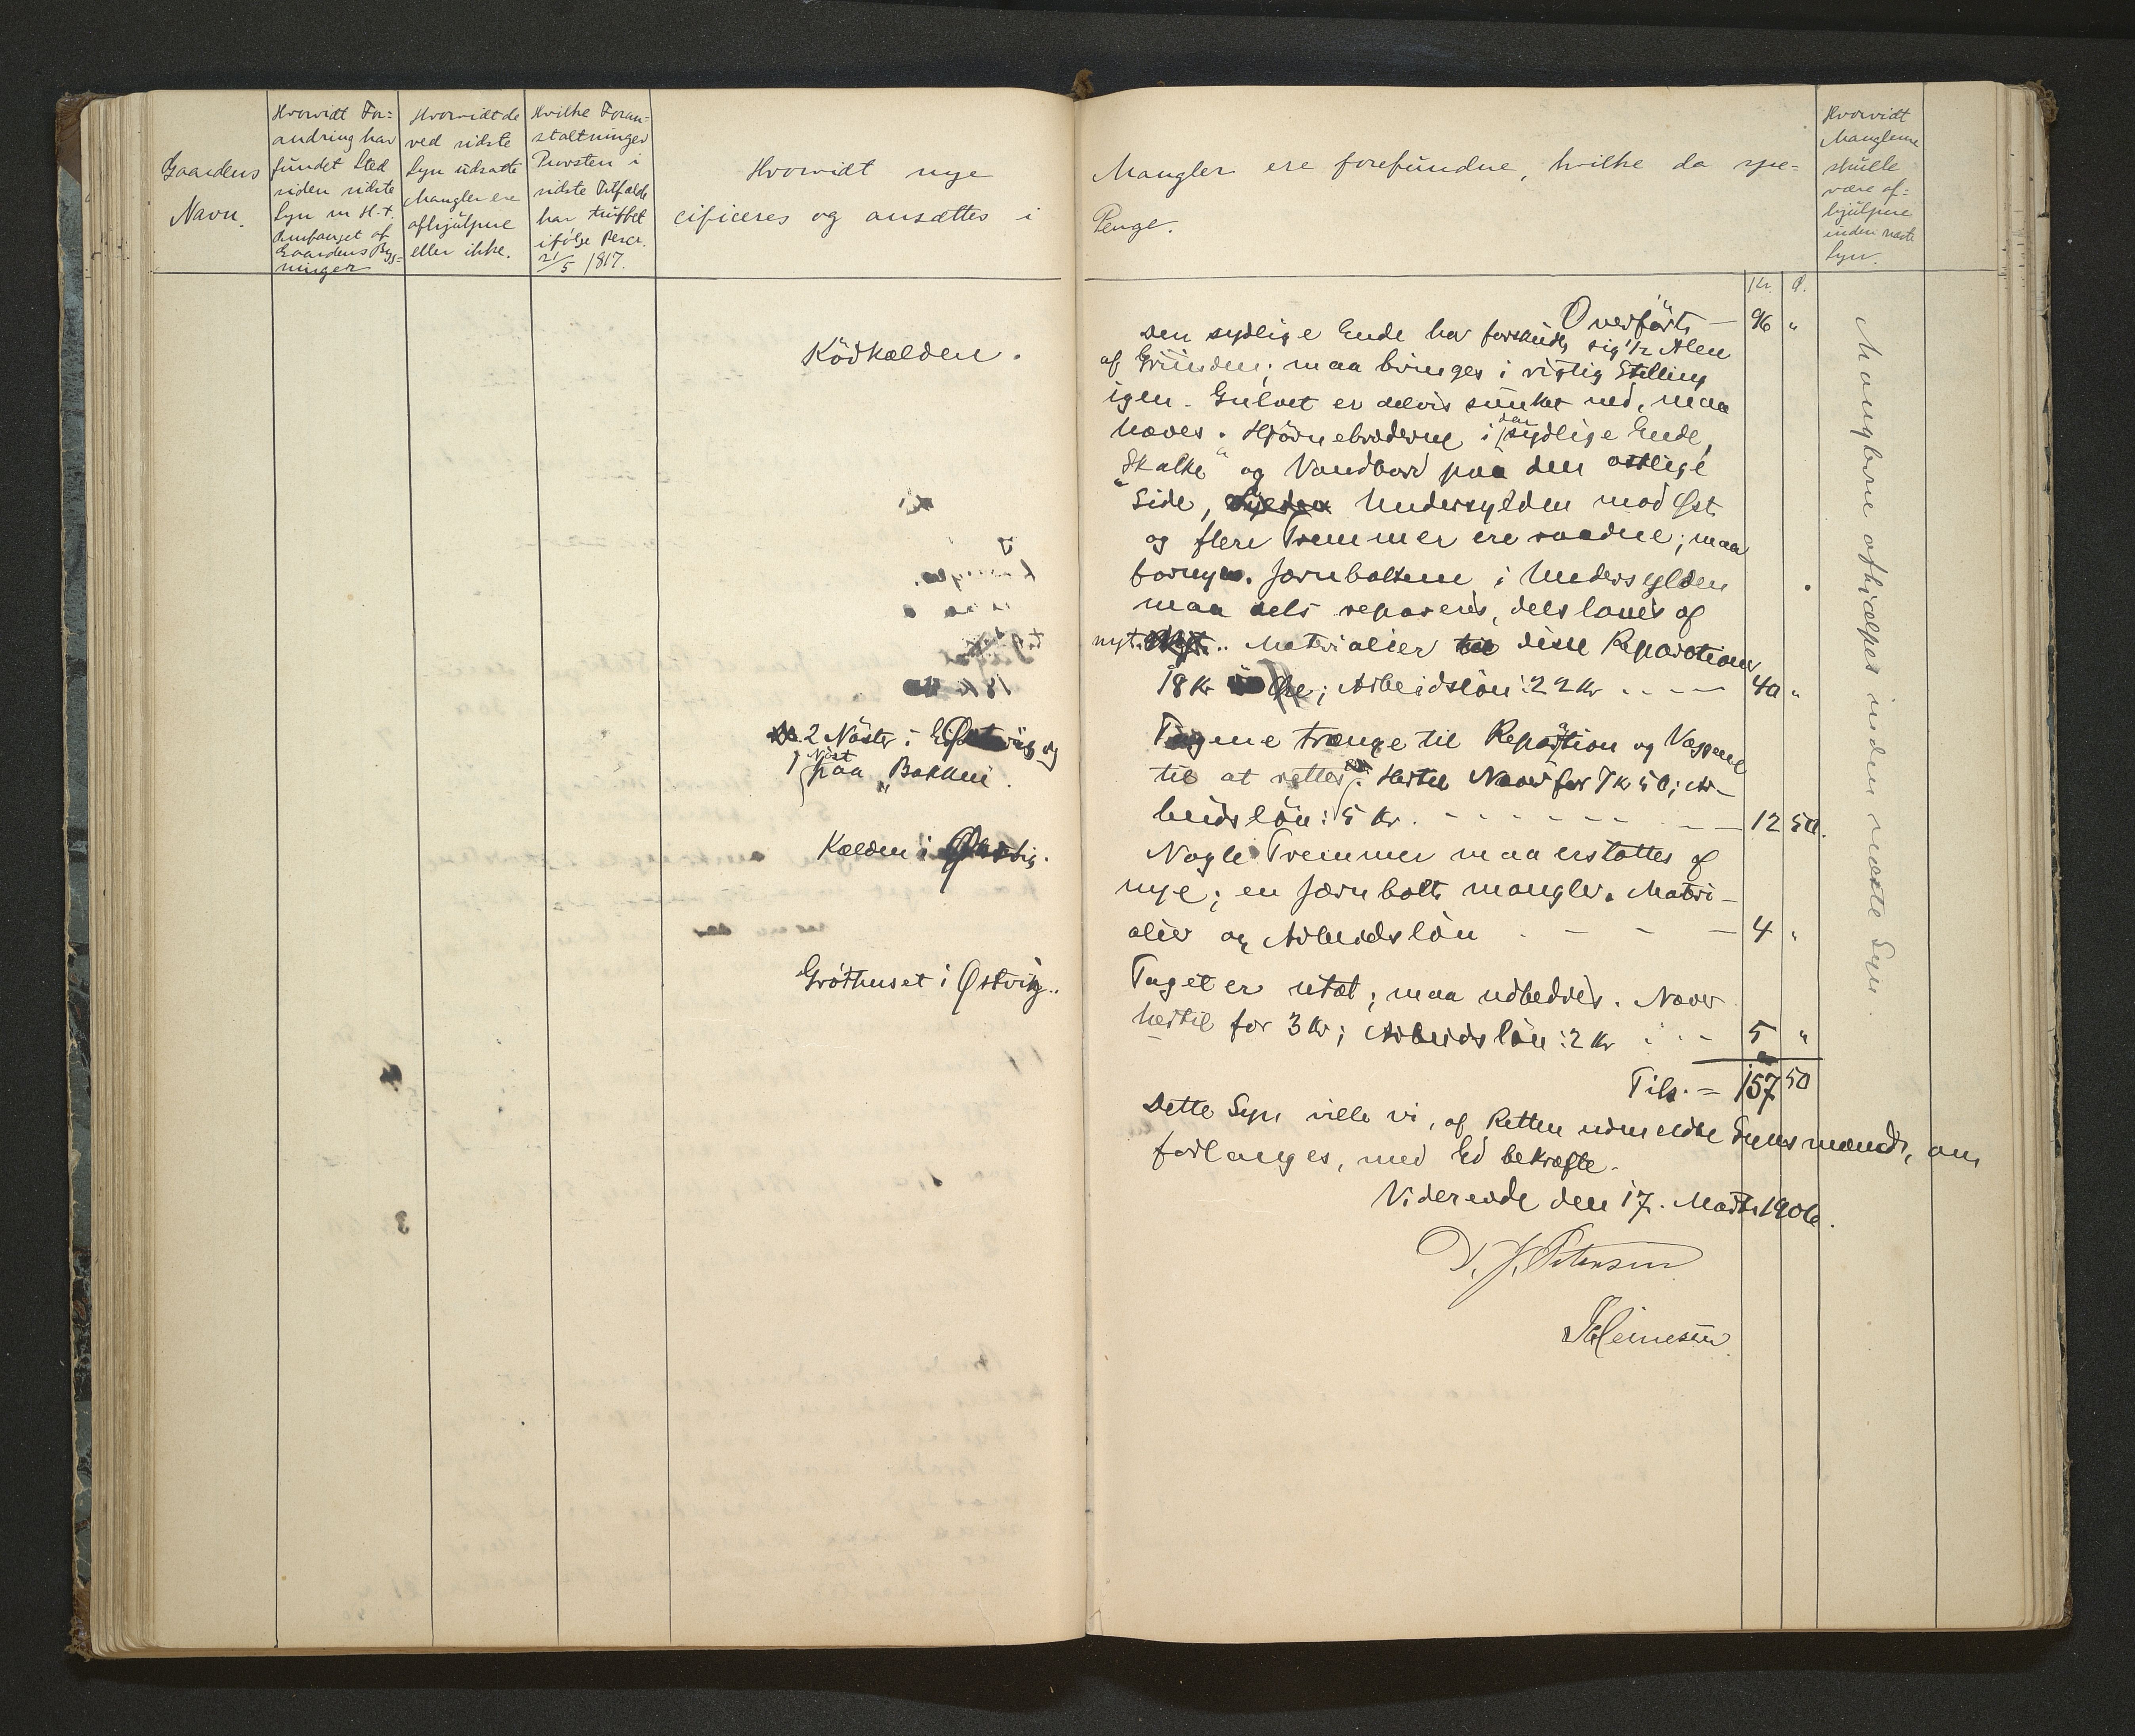 Gaardens
Navn.
Hvorvidt For-
andring har
fundet Sted
siden sidste
Syn m H. t.
Omfanget af
Gaardens Byg-
ninger
Hvorvidt de
ved sidste
Syn udsatte
Mangler ere
afhjulpne
eller ikke.
Hvilke Foran-
staltninger
Provsten i
sidste Tilfælde
har truffet
ifølge Reskr.
21/5 1817.
Hvorvidt nye
cificeres og ansættes i
Mangler ere forefundne, hvilke da spe-
Penge.
Hvorvidt
Manglerne
skulle
være af-
hjulpne
inden næste
Syn.
Kr. Ø.
Overført — 96 "
Ködkælderen.
Den sydlige Ende har forskudt sig 1/2 Alen
af Grunden; maa bringes i rigtig Stilling
igen. Gulvet er delvis sunket ned, maa
hæves. Hjörnebrædderne i den sydlige Ende,
"Skalke" og Vandbord paa den østlige
Side, Undersylden mod Øst
og flere Tremmer ere raadne; maa
fornyes. Jærnboltene i Undersylden
maa dels repareres, dels laves af
nyt. Materialier til disse Reparationer
18 Kr Øre; Arbeidslön: 22 Kr . . - — 40 "
2 Nöster i Østvig og
1 Nöst paa "Bakken".
Tagene trænge til Reparation og Væggene
til at rettes. Hertil Næver for 7 Kr 50; Ar-
beidslön: 5 Kr. - - - - - - — 12 50.
Kælderen i Østvig.
Nogle Tremmer maa erstattes af
nye; en Jærnbolt mangler. Materi-
alier og Arbeidslön - - - — 4 "
Gróthuset i Østvig.
Taget er utæt; maa udbedres. Næver
hertil for 3 Kr; Arbeidslön: 2 Kr - - - 5 "
Tils. = 157 50
Dette Syn ville vi, af Retten udmeldte Synsmænd, om
forlanges, med Ed bekræfte.
Videreide den 17. Marts 1906.
D. J. Petersen
J Heinesen
Manglerne afhjælpes inden næste Syn.